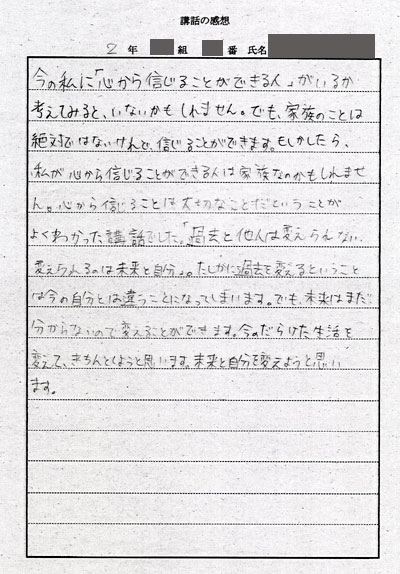 講話の感想
2年 組 番 氏名
今の私に「心から信じることができる人」がいるか
考えてみると、いないかもしれません。でも、家族のことは
絶対ではないけれど、信じることができます。もしかしたら、
私が心から信じることができる人は家族なのかもしれませ
ん。心から信じることは大切なことだということが
よくわかった講話でした。「過去と他人は変えられない、
変えられるのは未来と自分」。たしかに過去を変えるということ
は今の自分とは違うことになってしまいます。でも、未来はまだ
分からないので変えることができます。今のだらけた生活を
変えて、きちんとしようと思います。未来と自分を変えようと思い
ます。